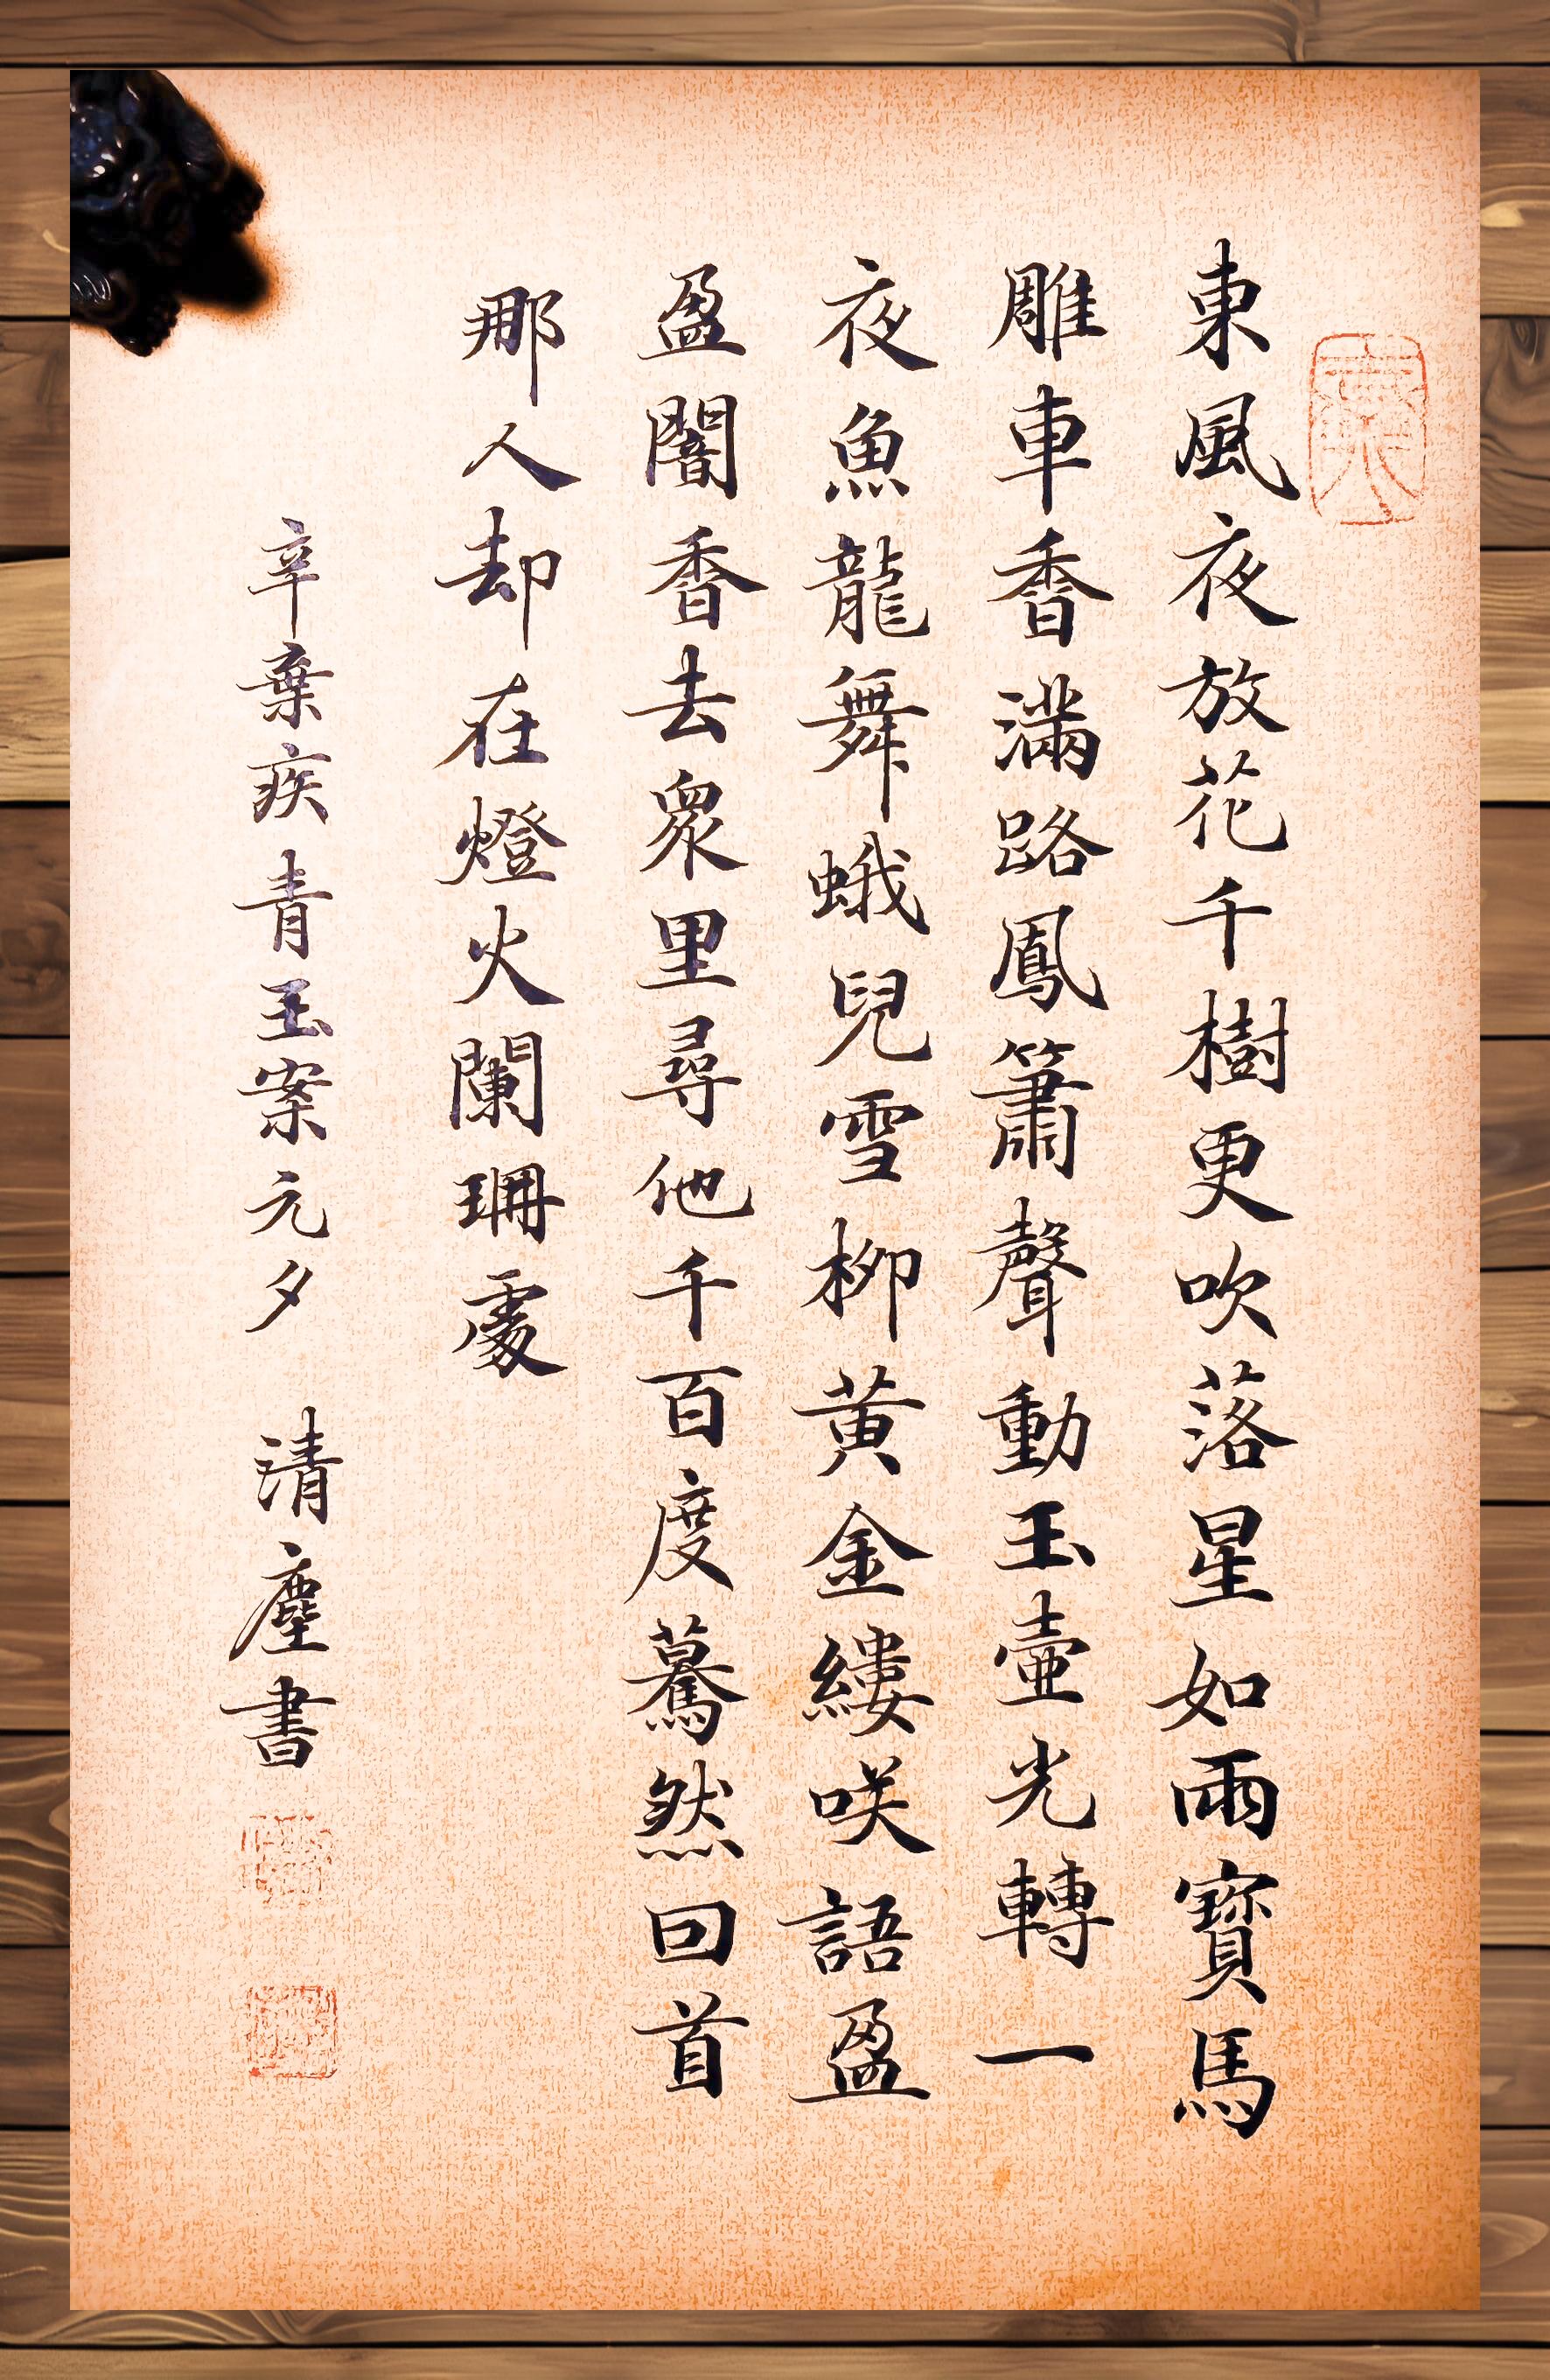 東風夜放花千樹更吹落星如雨寳馬
雕車香滿路鳳簫聲動玉壷光轉一
夜魚龍舞蛾兒雪柳黄金縷咲語盈
盈闇香去衆里尋他千百度驀然回首
那人却在燈火闌珊處
辛棄疾青玉案元夕 清塵書